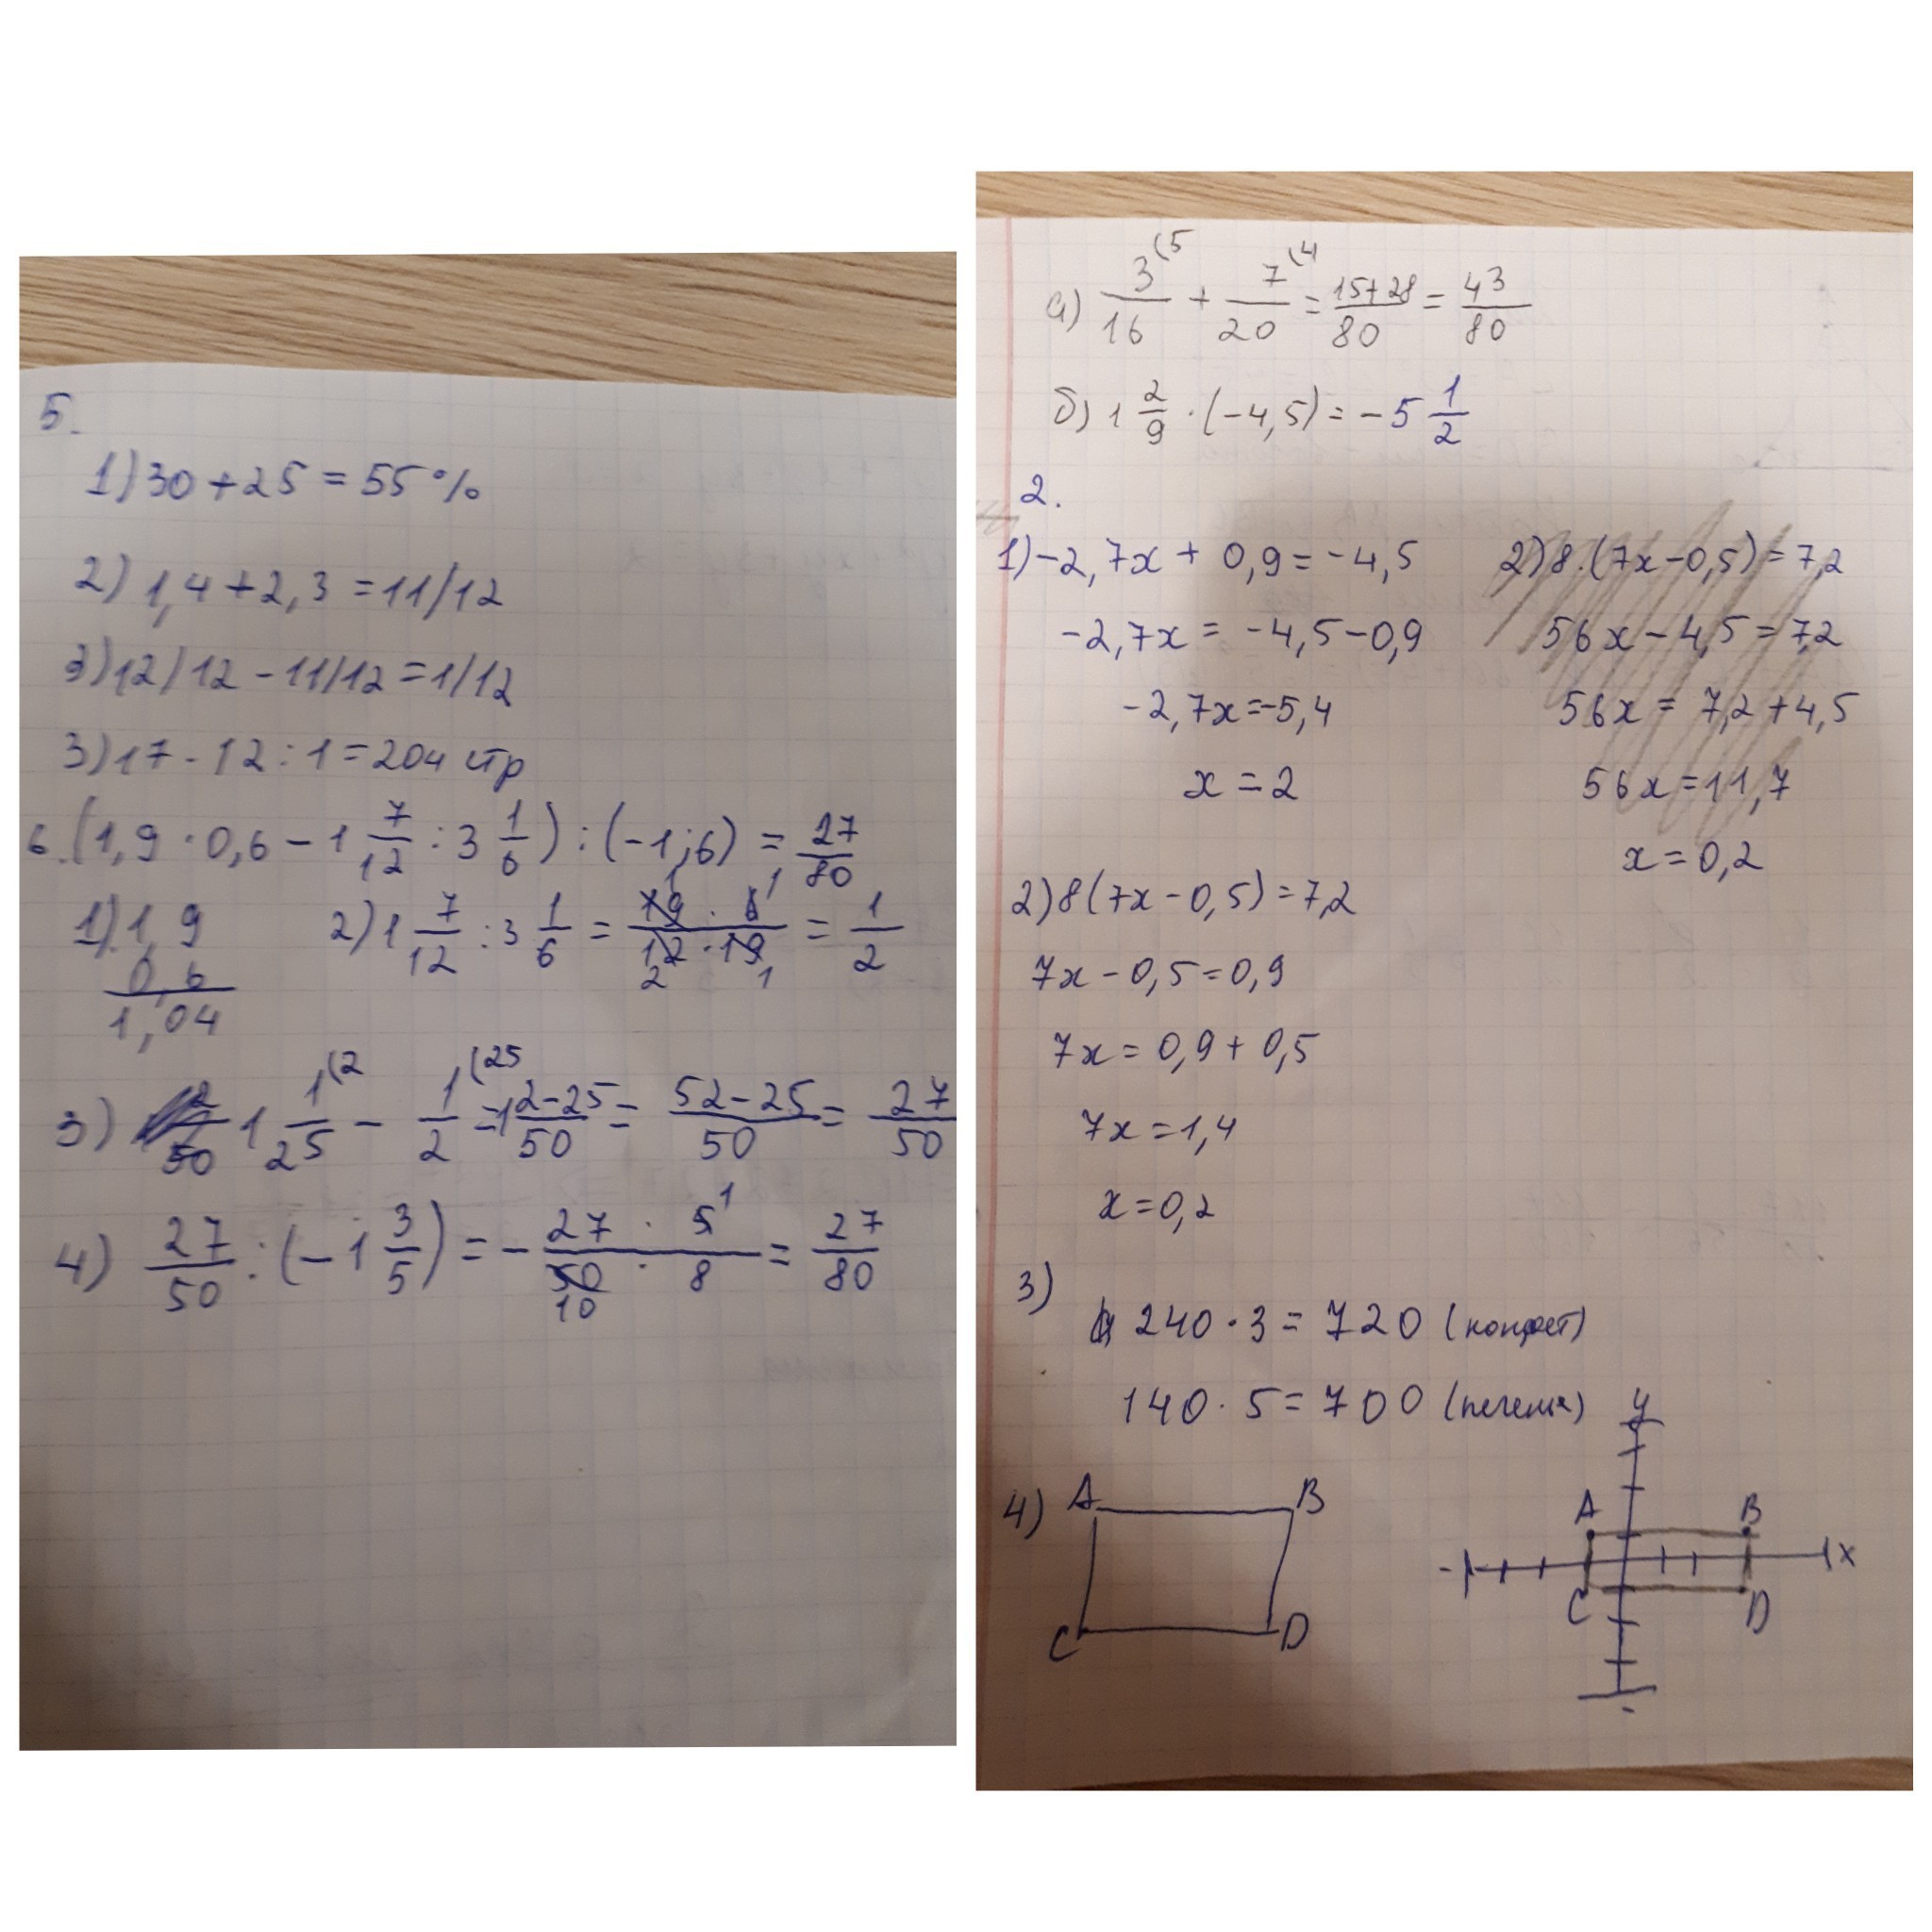 5.
1) 30 + 25 = 55 %
2) 1,4 + 2,3 = 11/12
3) 12/12 - 11/12 = 1/12
3) 17 - 12 : 1 = 204 стр
6. (1,9 · 0,6 - 1 7/12 : 3 1/6) : (-1,6) = 27/80
1) 1,9 0,6 1,04 2) 1 7/12 : 3 1/6 = 19 · 6 / 12 · 19 = 1/2
3) 1 1/25 (2 - 1/2 (25 = 1 2-25/50 = 52-25/50 = 27/50
4) 27/50 : (-1 3/5) = - 27 · 5 / 50 · 8 = 27/80
а) 3/16 (5 + 7/20 (4 = 15+28/80 = 43/80
б) 1 2/9 · (-4,5) = -5 1/2
2.
1) -2,7x + 0,9 = -4,5
-2,7x = -4,5-0,9
-2,7x = -5,4
x = 2
2) 8·(7x-0,5) = 7,2
56x - 4,5 = 7,2
56x = 7,2+4,5
56x = 11,7
x = 0,2
2) 8(7x - 0,5) = 7,2
7x - 0,5 = 0,9
7x = 0,9 + 0,5
7x = 1,4
x = 0,2
3)
240 · 3 = 720 (конфет)
140 · 5 = 700 (печенья)
4) A B C D
y
A B
x
C D